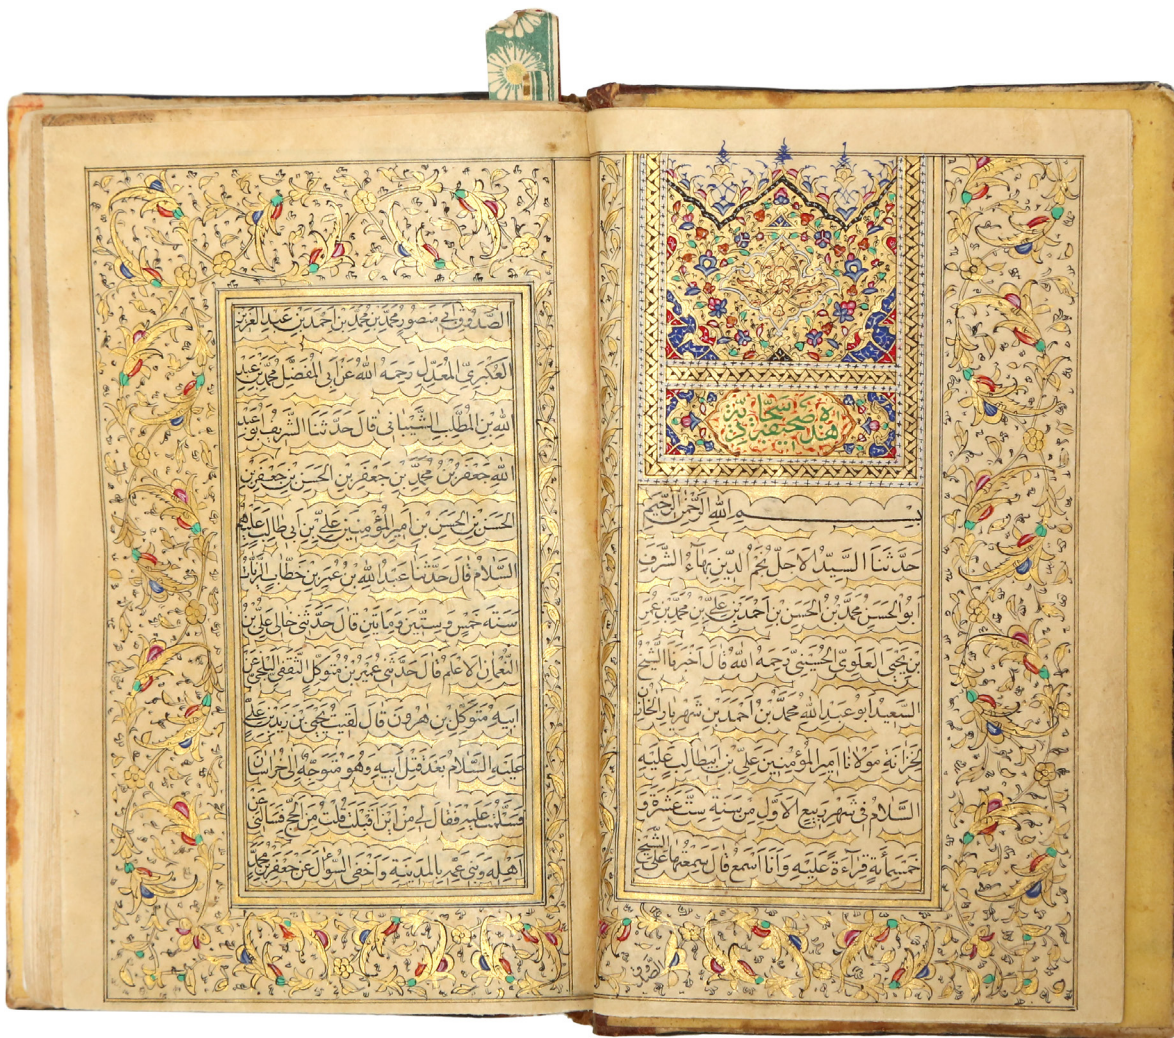 هذه صحيفة سجادية
بسم الله الرحمن الرحيم
حَدَّثَنَا السَّيِّدُ الاَجَلُّ نَجْمُ الدّينِ بَهَاءُ الشَّرَفِ
اَبُو الْحَسَنِ مُحَمَّدُ بْنُ الْحَسَنِ بْنِ اَحْمَدَ بْنِ عَلِيِّ بْنِ مُحَمَّدِ بْنِ عُمَرَ
بْنِ يَحْيَى الْعَلَوِيُّ الْحُسَيْنِيُّ رَحِمَهُ اللهُ قَالَ اَخْبَرَنَا الشَّيْخُ
السَّعِيدُ ابو عبد الله مُحَمَّدُ بْنُ اَحْمَدَ بْنِ شَهْرِيَارَ الْخَازِنُ
لِخِزَانَةِ مَوْلَانَا اَمِيرِ الْمُؤْمِنِينَ عَلِيِّ بْنِ اَبِيطَالِبٍ عَلَيْهِ
السَّلَامُ فِى شَهْرِ رَبِيعِ الاَوَّلِ مِنْ سَنَةِ سِتَّ عَشْرَةَ وَ
خَمْسَمِأَةٍ قِرَآءَةً عَلَيْهِ وَاَنَا اَسْمَعُ قَالَ سَمِعْتُهَا عَلَى الشَّيْخِ
الصَّدُوقِ اَبِي مَنْصُورٍ مُحَمَّدِ بْنِ مُحَمَّدِ بْنِ اَحْمَدَ بْنِ عَبْدِ الْعَزِيزِ
الْعُكْبَرِيِّ الْمُعَدَّلِ رَحِمَهُ اللهُ عَنْ اَبِي الْمُفَضَّلِ مُحَمَّدِ بْنِ عَبْدِ
اللهِ بْنِ الْمُطَّلِبِ الشَّيْبَانِى قَالَ حَدَّثَنَا الشَّرِيفُ اَبُو عَبْدِ
اللهِ جَعْفَرُ بْنُ مُحَمَّدِ بْنِ جَعْفَرِ بْنِ الْحَسَنِ بْنِ جَعْفَرِ بْنِ
الْحَسَنِ بْنِ الْحَسَنِ بْنِ اَمِيرِ الْمُؤْمِنِينَ عَلِيِّ بْنِ اَبِى طَالِبٍ عَلَيْهِمُ
السَّلَامُ قَالَ حَدَّثَنَا عَبْدُ اللهِ بْنُ عُمَرَ بْنِ خَطَّابٍ الزَّيَّاتُ
سَنَةَ خَمْسٍ وَسِتِّينَ وَمِاَتَيْنِ قَالَ حَدَّثَنِى خَالِى عَلِيُّ بْنُ
النُّعْمَانِ الاَعْلَمُ قَالَ حَدَّثَنِى عُمَيْرُ بْنُ مُتَوَكِّلٍ الثَّقَفِىُّ الْبَلْخِىُّ عَنْ
اَبِيهِ مُتَوَكِّلِ بْنِ هٰرُونَ قَالَ لَقِيتُ يَحْيَى بْنَ زَيْدِ بْنِ عَلِيٍّ
عَلَيْهِ السَّلَامُ بَعْدَ قَتْلِ اَبِيهِ وَهُوَ مُتَوَجِّهٌ اِلَى خُرَاسَانَ
فَسَلَّمْتُ عَلَيْهِ فَقَالَ لِى مِنْ اَيْنَ اَقْبَلْتَ قُلْتُ مِنَ الْحَجِّ فَسَاَلَنِى عَنْ
اَهْلِهِ وَبَنِى عَمِّهِ بِالْمَدِينَةِ وَاَحْفَى السُّؤَالَ عَنْ جَعْفَرِ بْنِ مُحَمَّدٍ